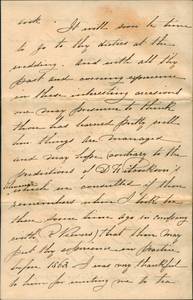 week. It will soon be time
to go to thy duties at the
wedding. And with all thy
past and coming experience
on these interesting occasions
we may presume to think
thou has learned pretty well
how things are managed
and may hope contrary to the
predictions of D
which we consulled if thou
remembers when I took tea
there some time ago in company
with that thou may
put thy experience in practice
before 1863. I was very thankful
to him for inviting me to tea